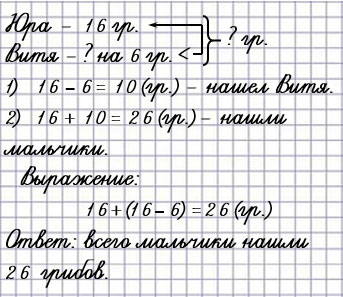 Юра – 16 гр.
Витя – ? на 6 гр. < ? гр.
1) 16 – 6 = 10 (гр.) – нашел Витя.
2) 16 + 10 = 26 (гр.) – нашли
мальчики.
Выражение:
16+(16–6) = 26 (гр.)
Ответ: всего мальчики нашли
26 грибов.